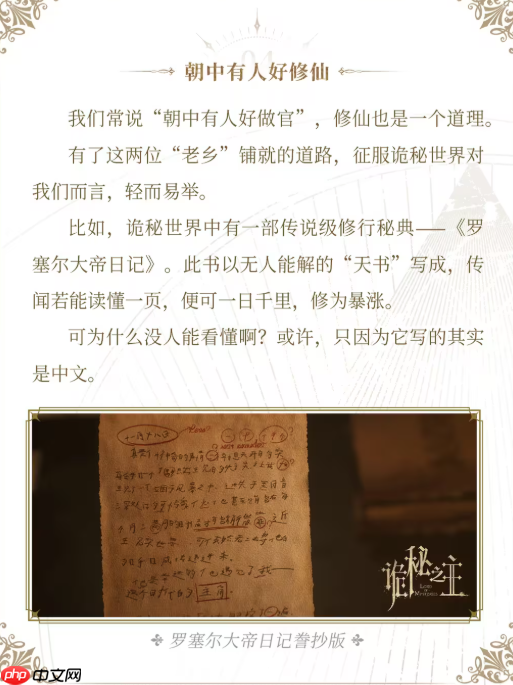 朝中有人好修仙
我们常说“朝中有人好做官”，修仙也是一个道理。
有了这两位“老乡”铺就的道路，征服诡秘世界对
我们而言，轻而易举。
比如，诡秘世界中有一部传说级修行秘典——《罗
塞尔大帝日记》。此书以无人能解的“天书”写成，传
闻若能读懂一页，便可一日千里，修为暴涨。
可为什么没人能看懂啊？或许，只因为它写的其实
是中文。
诡秘之主
罗塞尔大帝日记誊抄版
php中文网